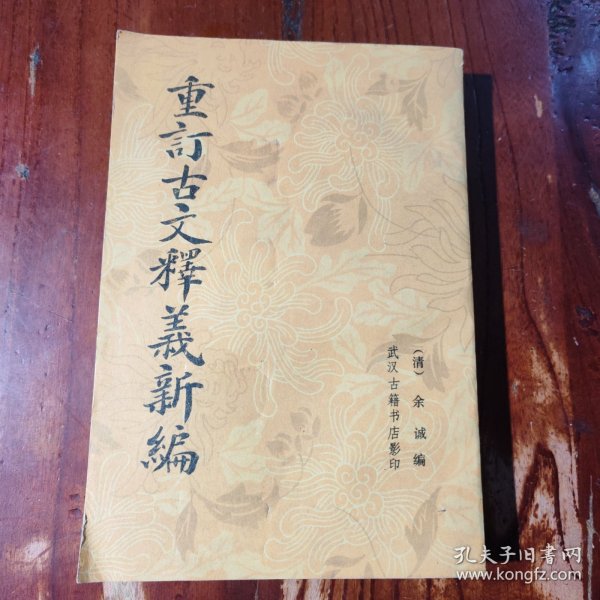 重訂古文釋義新編
（清） 余诚 编
武汉古籍书店影印
孔夫子旧书网
www.kongfz.com